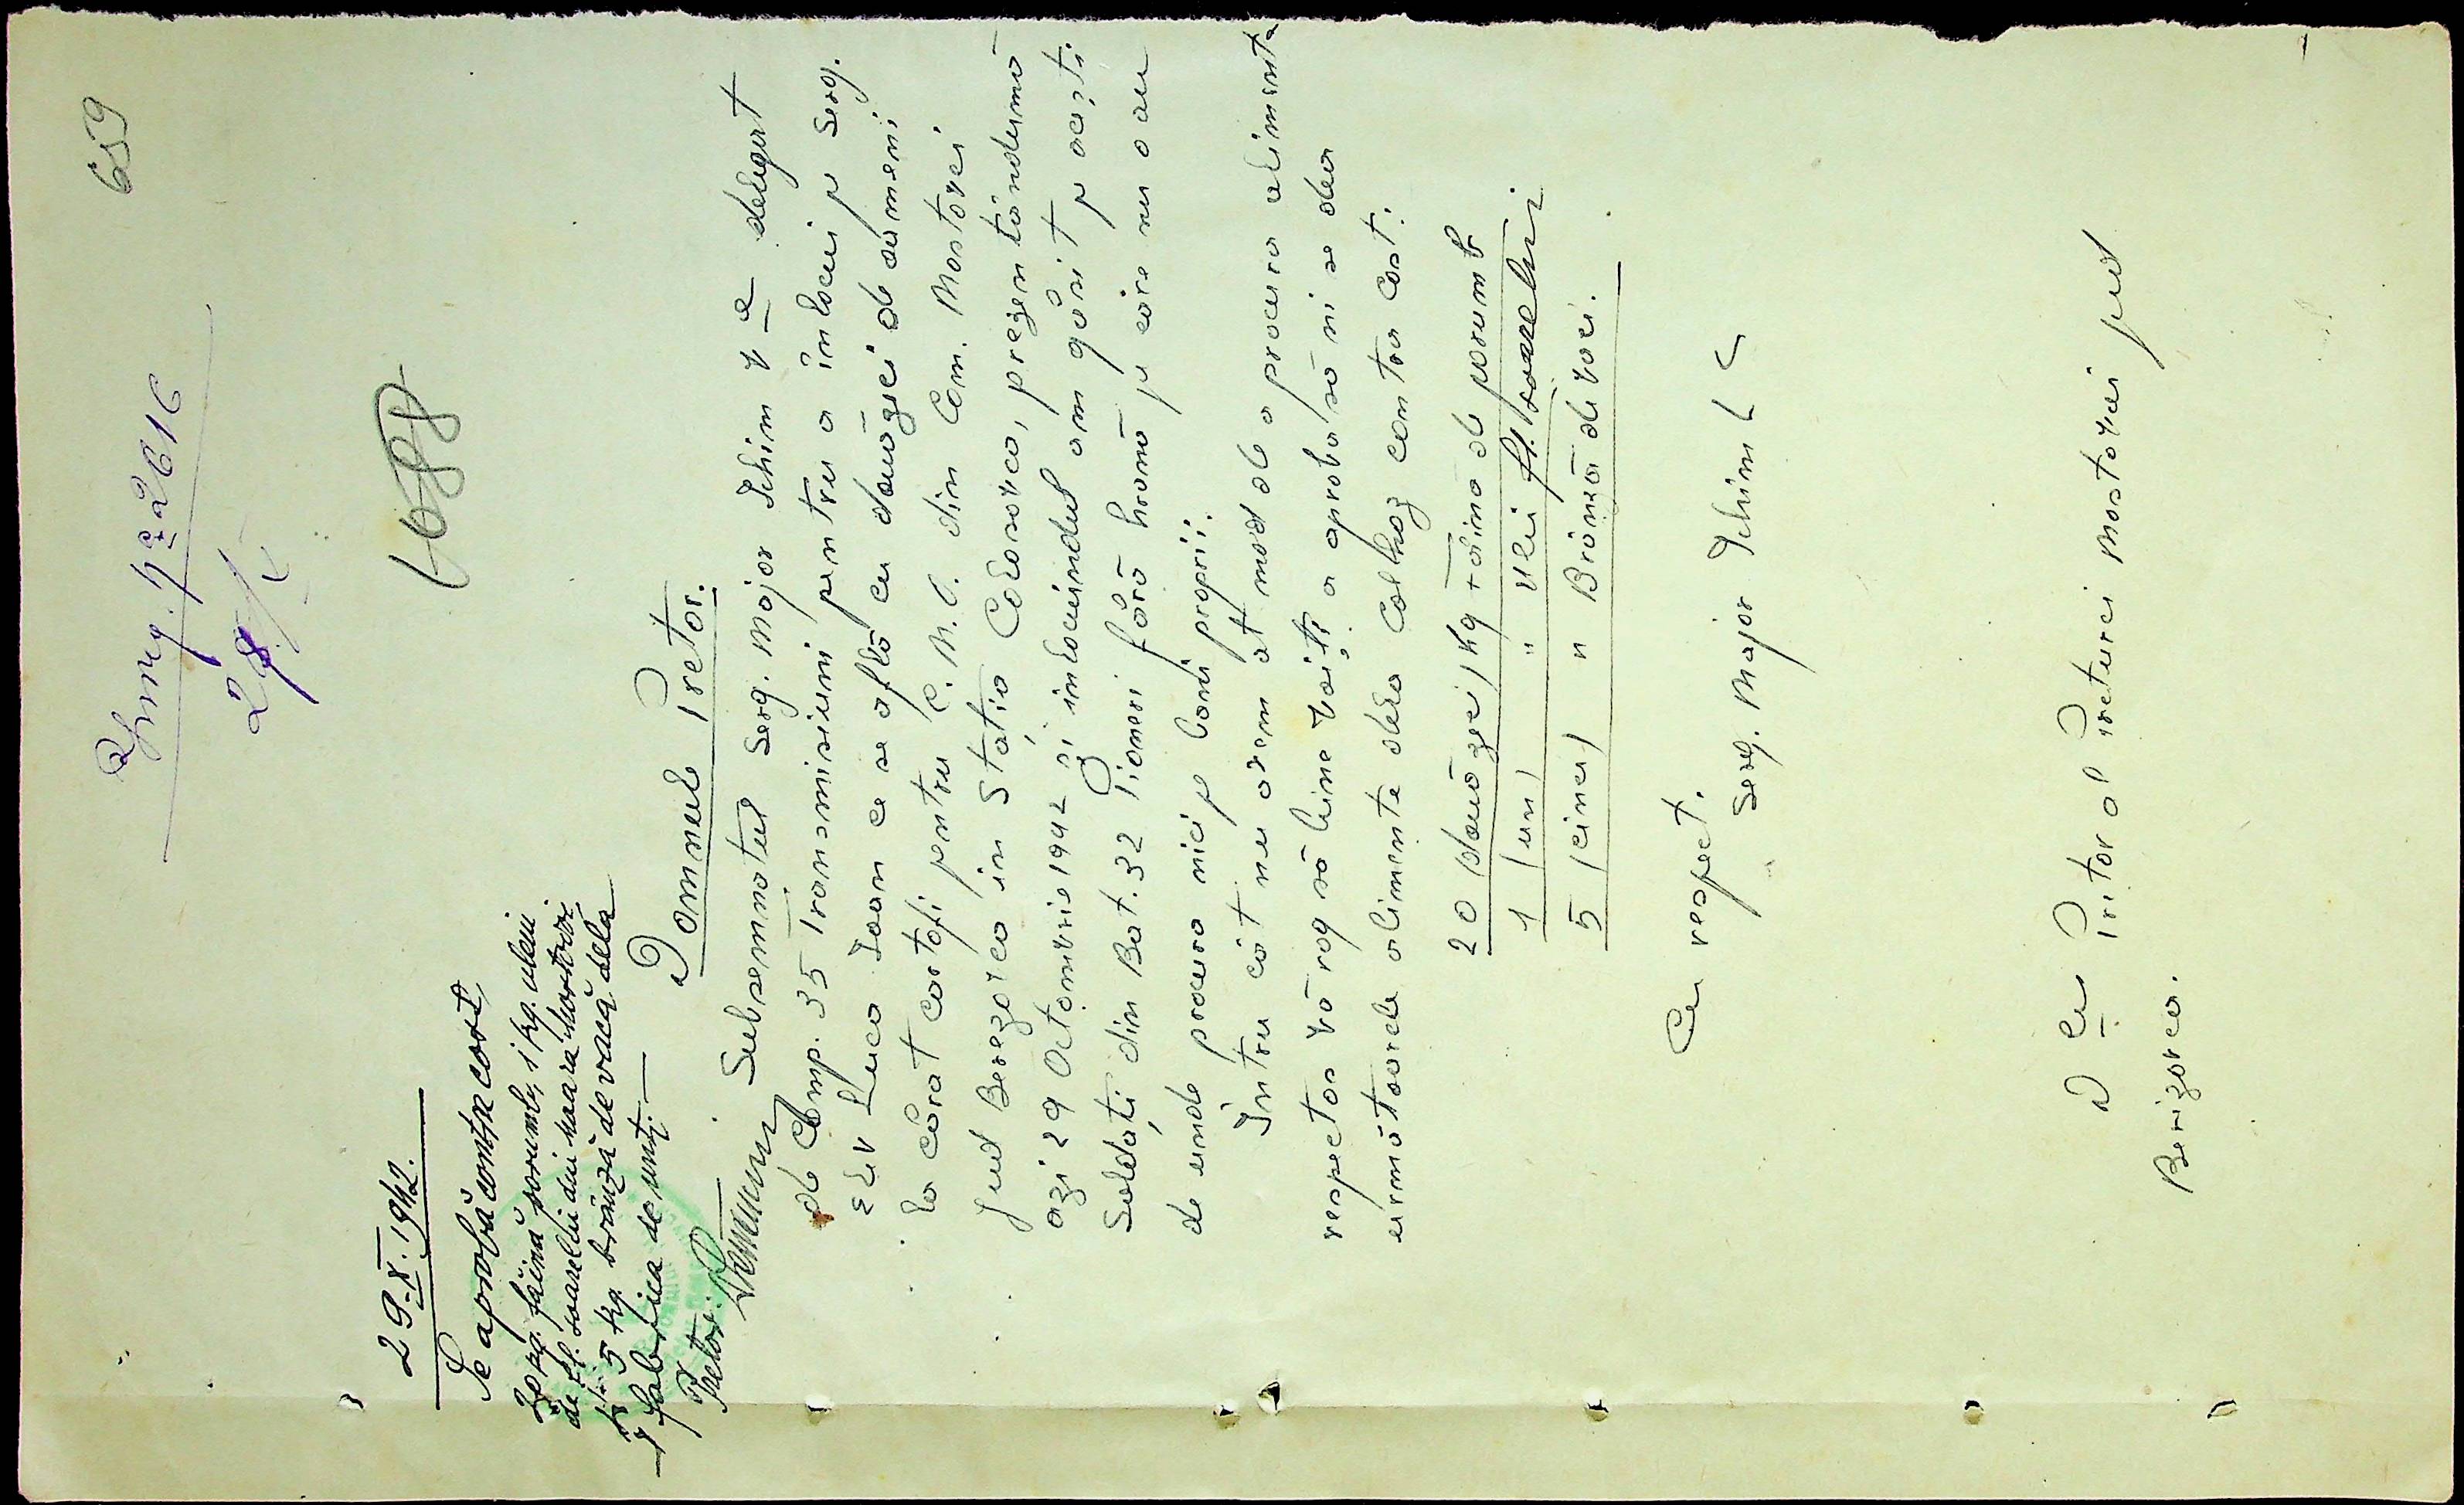 659
Inreg. No 2616
28/X
6088
29-X-1942.
Se aprobă contra cost,
20 kg. făină porumb, 1 kg. uleiu
de fl. soarelui din moara Mostovoi
și 5 kg. brânză de vacă dela
fabrica de unt.—
Pretor:
Domnule Pretor.
Subsemnatul Serg. Major Ichim V e delegat
de Comp. 35 Transmisiuni pentru a inlocui pe Serg.
elev Luca Ioan ce se aflo cu douăzeci de oameni
la cărat cartofi pentru C.N.C. din Com. Mostovoi
Jud Berezovca in Statia Colosovca, prezentândumă
azi 29 Octomvrie 1942 și inlocuindul am găsit pe acești
Soldați din Bat. 32 Pioneri fără hrană pe care nu o au
de unde procura nici pe banii proprii.
Intru cât nu avem alt mod de a procura alimente
respectos vă rog să bine voiți a aproba să ni se dea
urmatoarele alimente dela Colhoz contra cost:
20 (douăzeci) Kg făina de porumb
1 (un) " Ulei fl. soarelui
5 (cinci) " Brânză de vaci.
Cu respect.
Serg. Major Ichim V
D lui Pretor al Preturei Mostovoi jud
Berezovca.